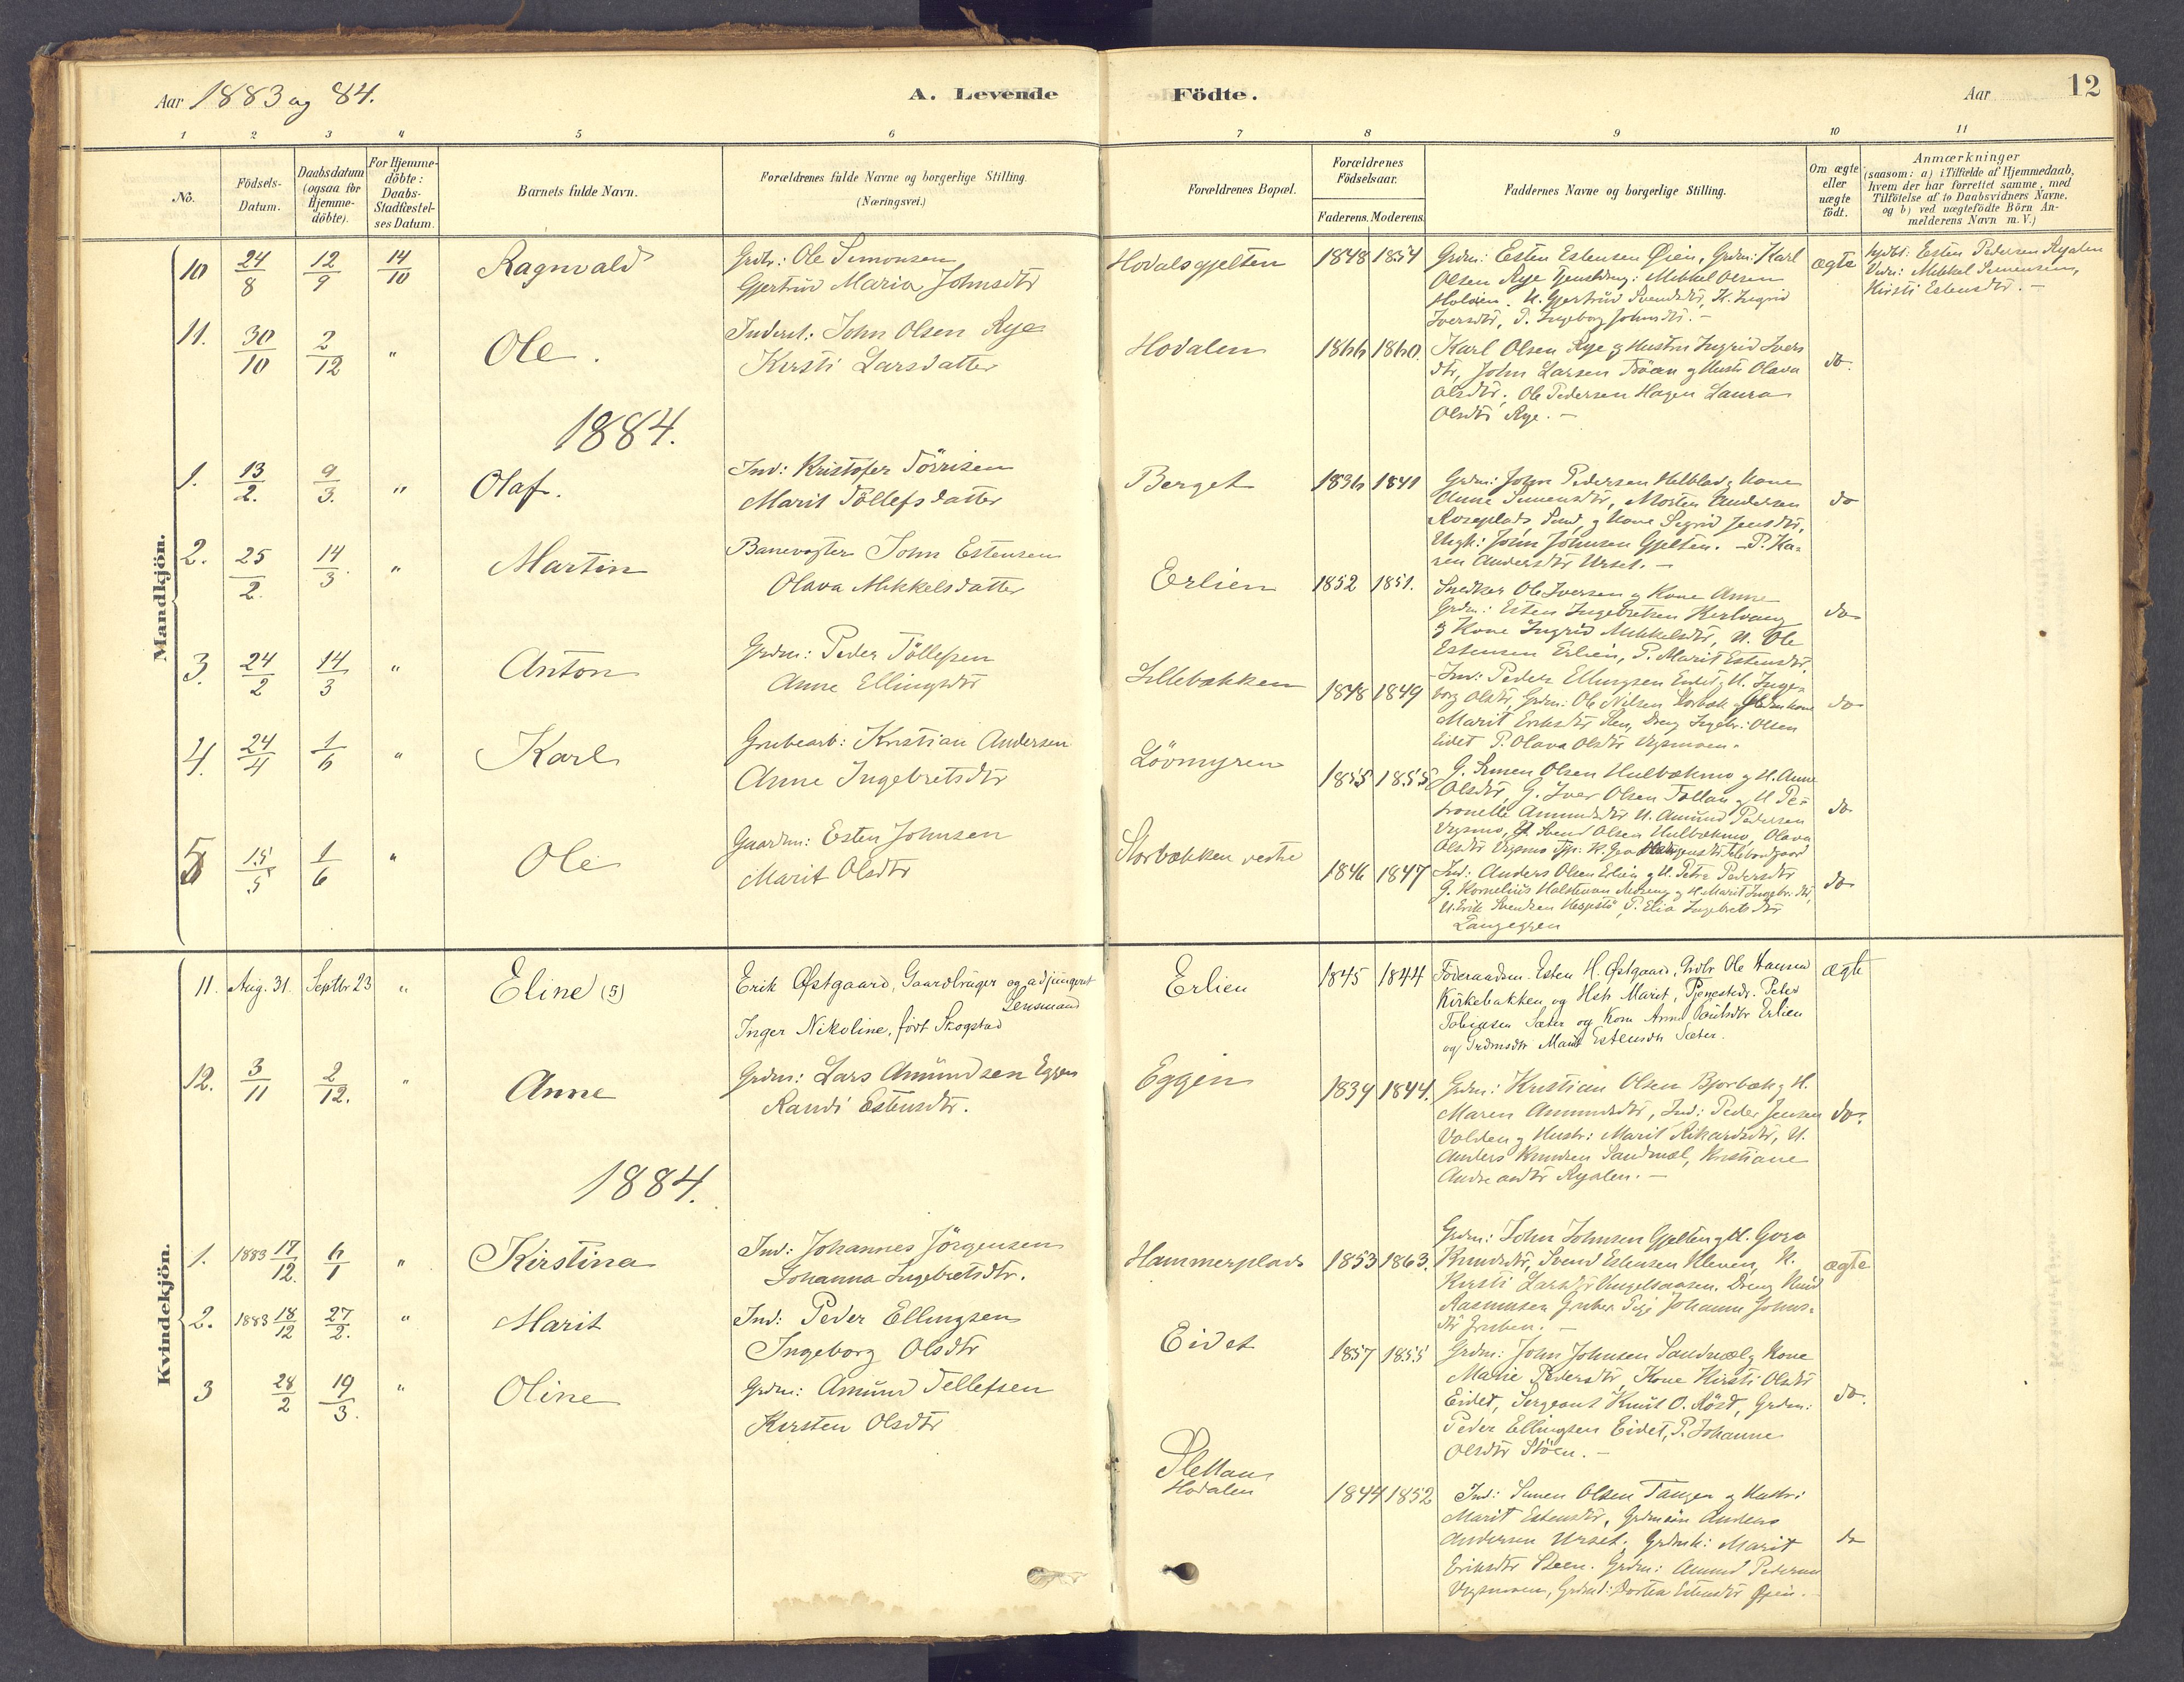 Aar 1883 og 84.
A. Levende Födte.
Aar
12
1 2 3 4 5 6 7 8 9 10 11
No.
Födsels-Datum.
Daabsdatum (ogsaa for Hjemme-döbte).
For Hjemme-döbte: Daabs-Stadfæstel-ses Datum.
Barnets fulde Navn.
Forældrenes fulde Navne og borgerlige Stilling.
(Næringsvei.)
Forældrenes Bopæl.
Forældrenes Födselsaar.
Faderens. Moderens.
Faddernes Navne og borgerlige Stilling.
Om ægte eller uægte födt.
Anmærkninger
(saasom: a) i Tilfælde af Hjemmedaab,
hvem der har forrettet samme, med
Tilföielse af to Daabsvidners Navne.
og b) ved uægtefödte Börn An-
melderens Navn m. V.)
Mandkjön.
10 24/8 12/9 14/10 Ragnvald
Grdbr: Ole Simonsen
Gjertrud Maria Johnsdtr
Hodalsgjelten 1848 1854
Grdm: Esten Estensen Øien, Grdm: Karl
Olsen Rye Tjenstdreng: Mikkel Olsen
Holøien. U. Gjertrud Svendsdtr, K. Ingrid
Iversdtr, P. Ingeborg Johnsdtr. –
ægte
hjdbt: Esten Pedersen Ryalen
Vidn: Mikkel Simensen,
Kirsti Estensdtr. –
11. 30/10 2/12 " Ole.
Inderst: John Olsen Rye
Kirsti Larsdatter
Hodalen 1866 1860.
Karl Olsen Rye og Hustru Ingrid Ivers
dtr, John Larsen Tröen og Hustr Olava
Olsdtr, Ole Pedersen Hagen Laura
Olsdtr Rye. –
do.
1884.
1. 13/2. 9/3. " Olaf.
Ind: Kristofer Törrisen
Marit Töllefsdatter
Berget 1836 1841
Grdm: John Pedersen Helblad og Kone
Anne Simensdtr, Morten Andersen
Roseplads Ind, og Kone Sigrid Jensdtr,
Ungk: John Johnsen Gjelten. – P. Ka-
ren Andersdtr Urset. –
do
2. 25/2. 14/3. " Martin
Banevogter John Estensen
Olava Mikkelsdatter
Erlien 1852 1851.
Snedker Ole Iversen og Kone Anne
Grdm: Esten Ingebretsen Herlvang
og Kone Ingrid Mikkelsdtr, U. Ole
Estensen Erlien, P. Marit Estensdtr.
do
3. 24/2 14/3 " Anton
Grdm: Peder Töllefsen
Anne Ellingsdtr
Lillebækken 1848 1849
Ind: Peder Ellingsen Eidet, H. Inge-
borg Olsdtr, Grdm: Ole Nilsen Storbæk
Marit Eriksdtr Sten, Dreng Ingebr: Olsen
Eidet P. Olava Olsdtr Vignoven.
do
4. 24/4 1/6 " Karl
Grubearb: Kristian Andersen
Anne Ingebretsdtr
Lövmyren 1855 1855
G. Simen Olsen Hulbækmo og H. Anne
Olsdtr, G. Iver Olsen Tollan og H Pe-
tronelle Amundsdtr U. Amund Pedersen
Vigsmo, Svend Olsen Hulbækmo, Olava
Olsdtr Vigsmo
do
5 15/5 1/6 " Ole
Gaardm: Esten Johnsen
Marit Olsdtr
Storbækken vestre 1846 1847
Ind: Anders Olsen Erlien og H. Petra Pedersdtr
G. Kornelius Halstensen Moseng og H. Marit Ingebr. dtr,
U. Erik Svendsen P. Elia Ingebretsdtr
Langeggen
do
Kvindekjön.
11. Aug. 31. Septbr 23 " Eline (5)
Erik Østgaard, Gaardbruger og adjungert
Lensmand
Inger Nikoline, født Skogstad
Erlien 1845 1844
Föderaadsm. Esten H. Østgaard, Grdbr Ole Hansen
Kirkebakken og Hstr Marit, Tjenestedr. Peter
Tobiasen Sæter og Kone Anne Erlien
og Grdmsdtr Marit Estensdtr Sæter.
ægte
12. 3/11 2/12. " Anne
Grdm: Lars Amundsen Eggen
Randi Estensdtr.
Eggen 1839 1844.
Grdm: Kristian Olsen Bjorbæk og H.
Maren Amundsdtr, Ind: Peder Jensen
Volden og Hustr: Marit Rikardsdtr, U.
Anders Knudsen Sandmæl, Kristiane
Andreasdtr Ryalen. –
do.
1884.
1. 1883 17/12. 6/1 " Kirstina
Ind: Johannes Jörgensen
Johanna Ingebretsdtr.
Hammerplads 1853 1863.
Grdm: John Johnsen Gjelten og H. Goro
Knudsdtr, Svend Estensen Kleven, K.
Kirsti Larsdtr Vingelsaasen. Dreng Knud
Rasmussen Gruben Pige Johanne Johns-
dtr Gruben. –
ægte
2. 1883 18/12 27/2. " Marit
Ind: Peder Ellingsen
Ingeborg Olsdtr
Eidet 1857 1855
Grdm: John Johnsen Sandmæl og Kone
Malie Pedersdtr, Kone Kirsti Olsdtr
Eidet, Sergeant Knut O. Röst, Grdm:
Peder Ellingsen Eidet, P. Johanne
Olsdtr Stöen. –
do.
3 28/2 19/3. " Oline
Grdm: Amund Tellefsen
Kirsten Olsdtr
Slettan
Hodalen 1844 1852
Ind: Simen Olsen Tangen og Hustr:
Marit Estensdtr, Grdmsön Anders
Andersen Urset, Grdmk: Marit
Eriksdtr Steen. Grdm: Amund Pedersen
Vigsmoen, Grdmd: Dortea Estensdtr Øien. –
do